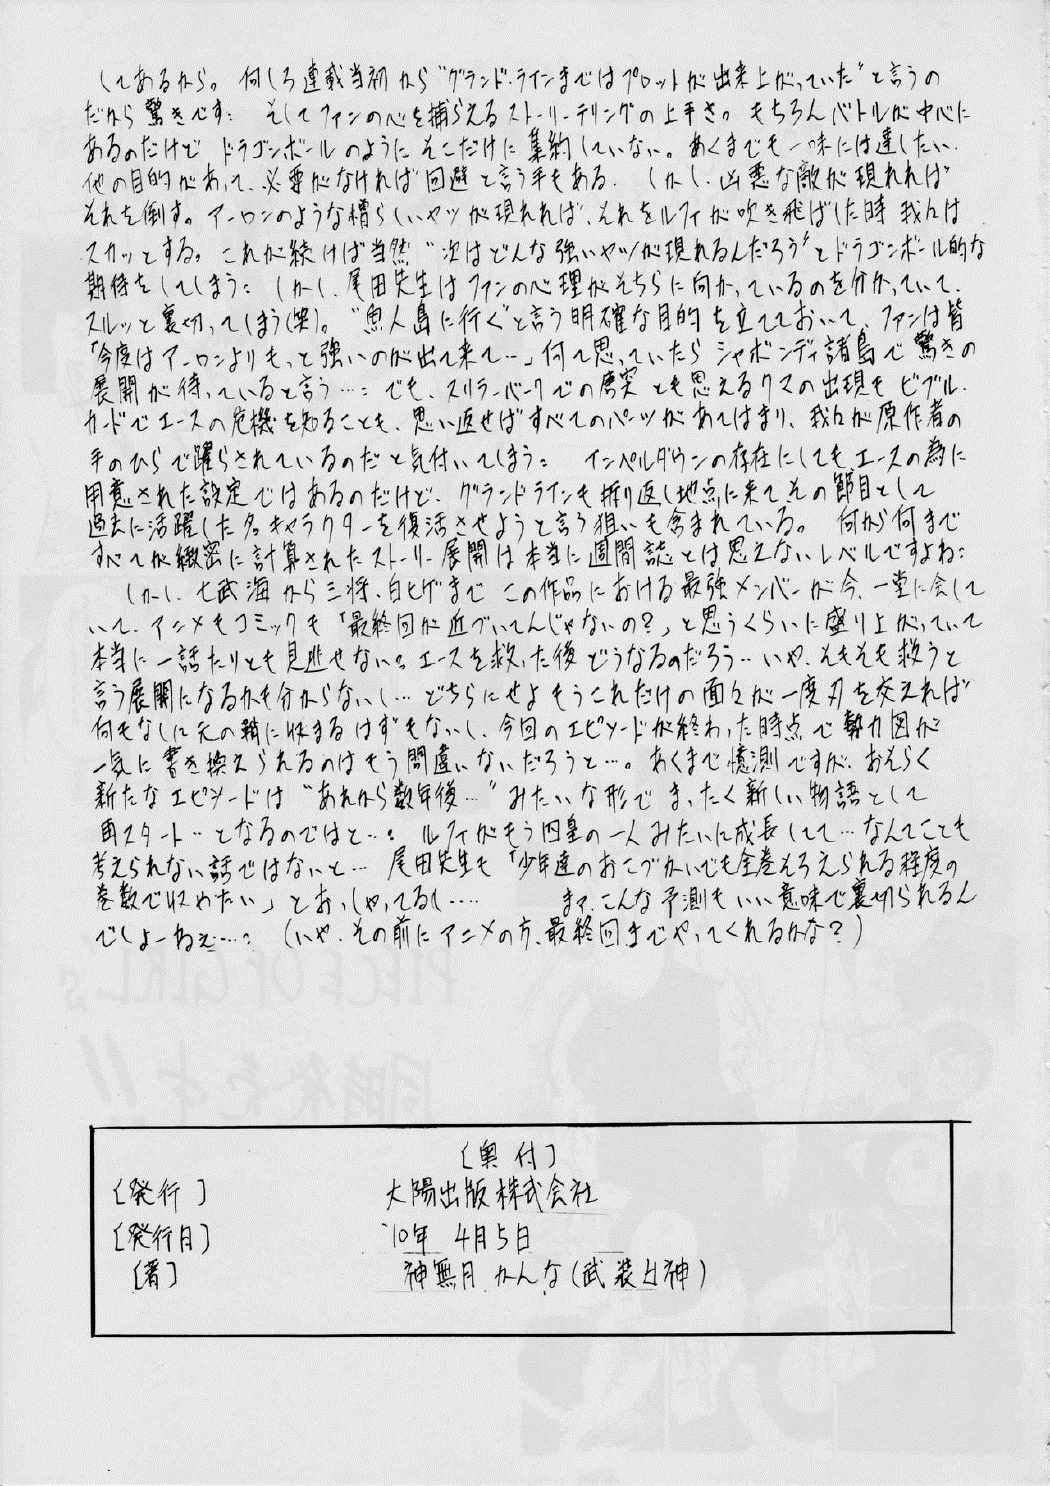 してあるから。何しろ連載当初から"グランド・ラインまではプロットが出来上がっていた"と言うの
だから驚きです: そしてファンの心を捕らえるストーリーテリングの上手さ。もちろんバトルが中心に
あるのだけど ドラゴンボールのようにそこだけに集約していない。あくまでも一味には達したい
他の目的があって、必要がなければ回避と言う手もある。しかし、凶悪な敵が現れれば
それを倒す。アーロンのような憎らしいヤツが現れれば、それをルフィが吹き飛ばした時 我々は
スカッとする。これが続けば当然"次はどんな強いヤツが現れるんだろう"とドラゴンボール的な
期待をしてしまう: しかし、尾田先生はファンの心理がそちらに向かっているのを分かっていて、
スルッと裏切ってしまう(笑)。"魚人島に行く"と言う明確な目的を立てておいて、ファンは皆
「今度はアーロンよりもっと強いのが出て来て…」何て思っていたら シャボンディ諸島で驚きの
展開が待っていると言う…: でも、スリラーバークでの唐突とも思えるクマの出現も ビブル・
カードでエースの危機を知ることも、思い返せばすべてのパーツがあてはまり、我々が原作者の
手のひらで躍らされているのだと気付いてしまう: インペルダウンの存在にしてもエースの為に
用意された設定ではあるのだけど、グランドラインも折り返し地点に来てその節目として
過去に活躍した名キャラクターを復活させようと言う狙いも含まれている。何から何まで
すべてが緻密に計算されたストーリー展開は本当に週間誌とは思えないレベルですよね:
しかし、七武海から三将、白ヒゲまで この作品における最強メンバーが今、一堂に会して
いて、アニメもコミックも「最終回が近づいてんじゃないの?」と思うくらいに盛り上がっていて
本当に一話たりとも見逃せない。エースを救った後どうなるのだろう…いや、そもそも救うと
言う展開になるかも分からないし…どちらにせよもうこれだけの面々が一度刃を交えれば
何もなしに元の鞘に収まるはずもないし、今回のエピソードが終わった時点で勢力図が
一気に書き換えられるのはもう間違いないだろうと…。あくまで憶測ですが、おそらく
新たなエピソードは"あれから数年後…"みたいな形でまったく新しい物語として
再スタート…となるのではと…: ルフィがもう四皇の一人みたいに成長してて…なんてことも
考えられない話ではないと… 尾田先生も「少年達のおこづかいでも全巻そろえられる程度の
巻数で収めたい」とおっしゃってるし…… まァ、こんな予測もいい意味で裏切られるん
でしょーねぇ…: (いや、その前にアニメの方、最終回までやってくれるかな?)
[奥付]
[発行] 大陽出版株式会社
[発行日] '10年 4月5日
[著] 神無月かんな(武装女神)